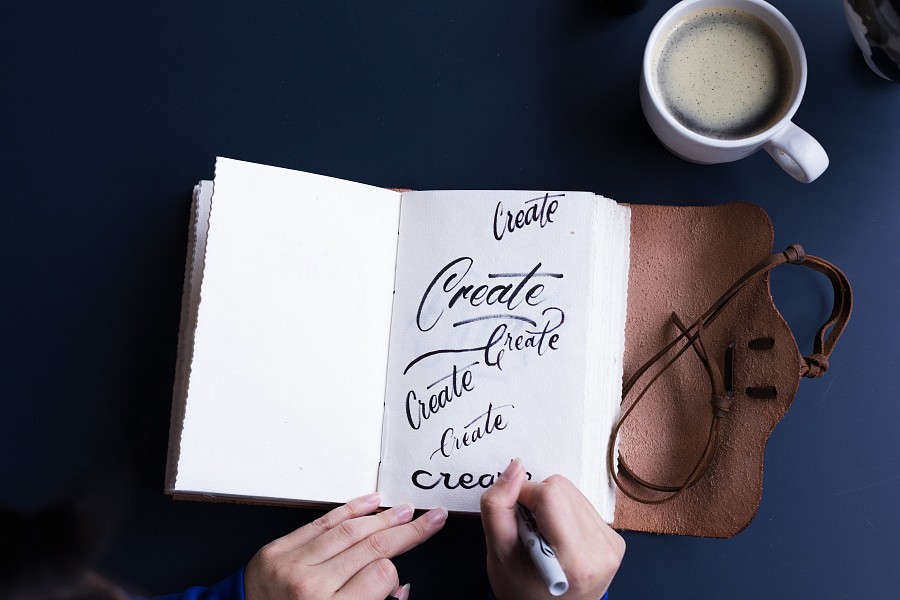 Create
Create
Create
Create
Create